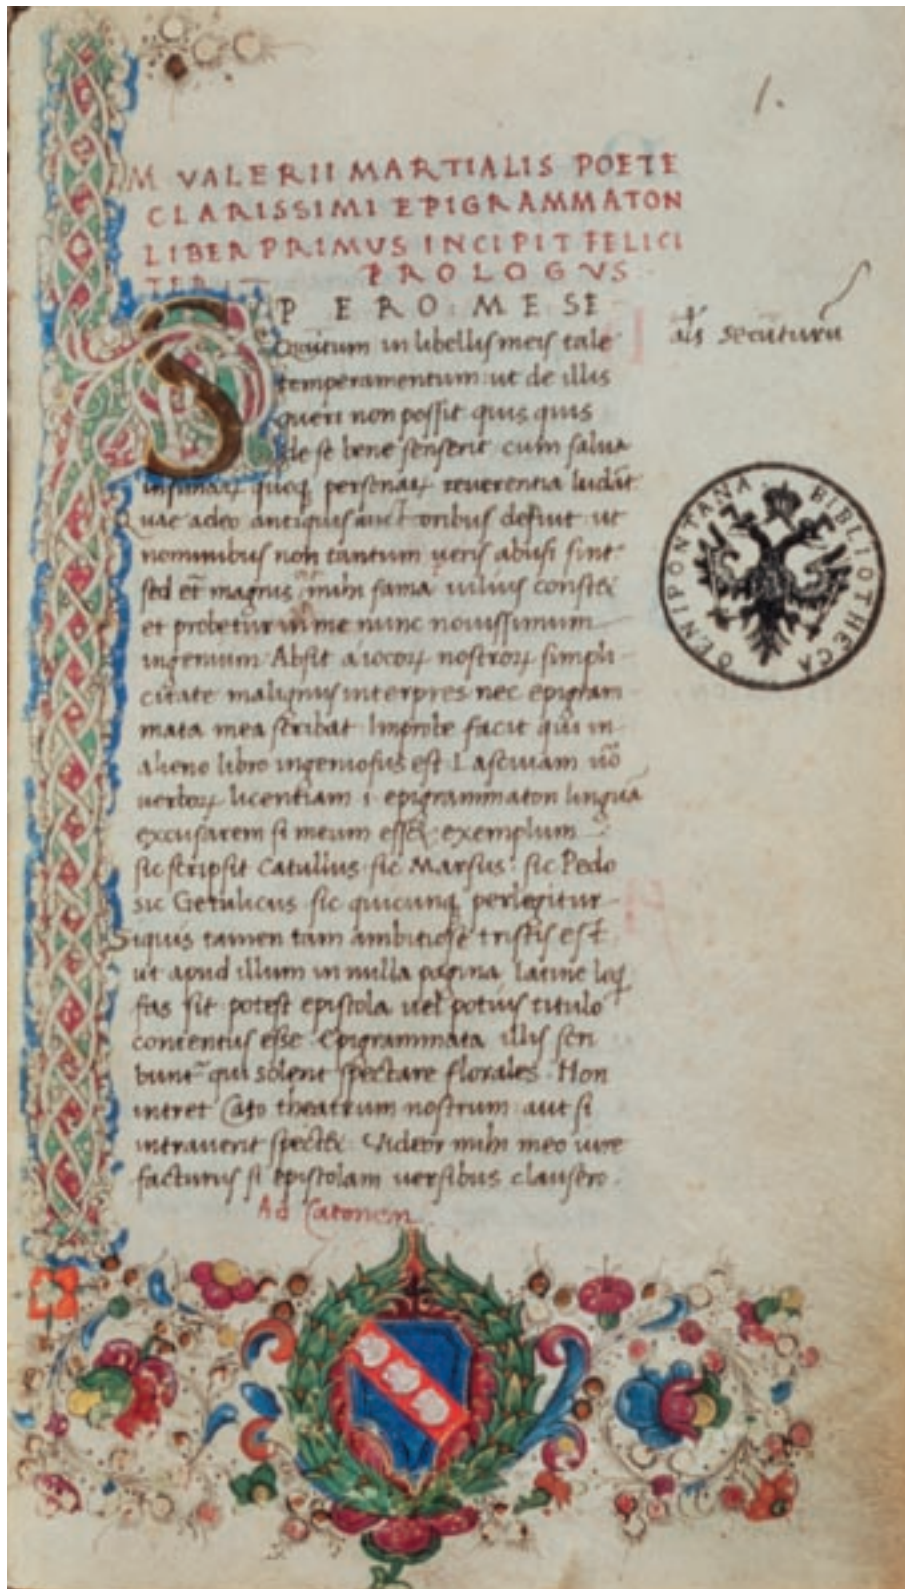 1.
M VALERII MARTIALIS POETE
CLARISSIMI EPIGRAMMATON
LIBER PRIMUS INCIPIT FELICI
TER PROLOGVS
SPERO ME SE
cutum in libellis meis tale
temperamentum: ut de illis
queri non possit quis quis
de se bene senserit cum salua
infimaꝝ quoqꝫ personaꝝ reuerentia ludāt
Quae adeo antiquis auctoribus defuit ut
nominibus non tantum ueris abusi sint
sed et̄ magnis mihi fama uilius constet
et probetur in me nunc nouissimum
ingenium Absit a iocoꝝ nostroꝝ simpli
citate malignus interpres nec epigram
mata mea scribat Improbe facit qui in
alieno libro ingeniosus est Lasciuam
uerboꝝ licentiam i epigrammaton linguā
excusarem si meum esset exemplum
sic scripsit Catullus sic Marsus sic Pedo
sic Getulicus sic quicunqꝫ perlegitur
Siquis tamen tam ambitiose tristis est
ut apud illum in nulla pagina latine
fas sit potest epistola uel potius titulo
contentus esse Epigrammata illis scri
bunt qui solent spectare florales Non
intret Cato theatrum nostrum aut si
intrauerit spectet Videor mihi meo iure
facturus si epistolam uersibus clausero.
Ad Catonem
secuturū
BIBLIOTHECA OENIPONTANA